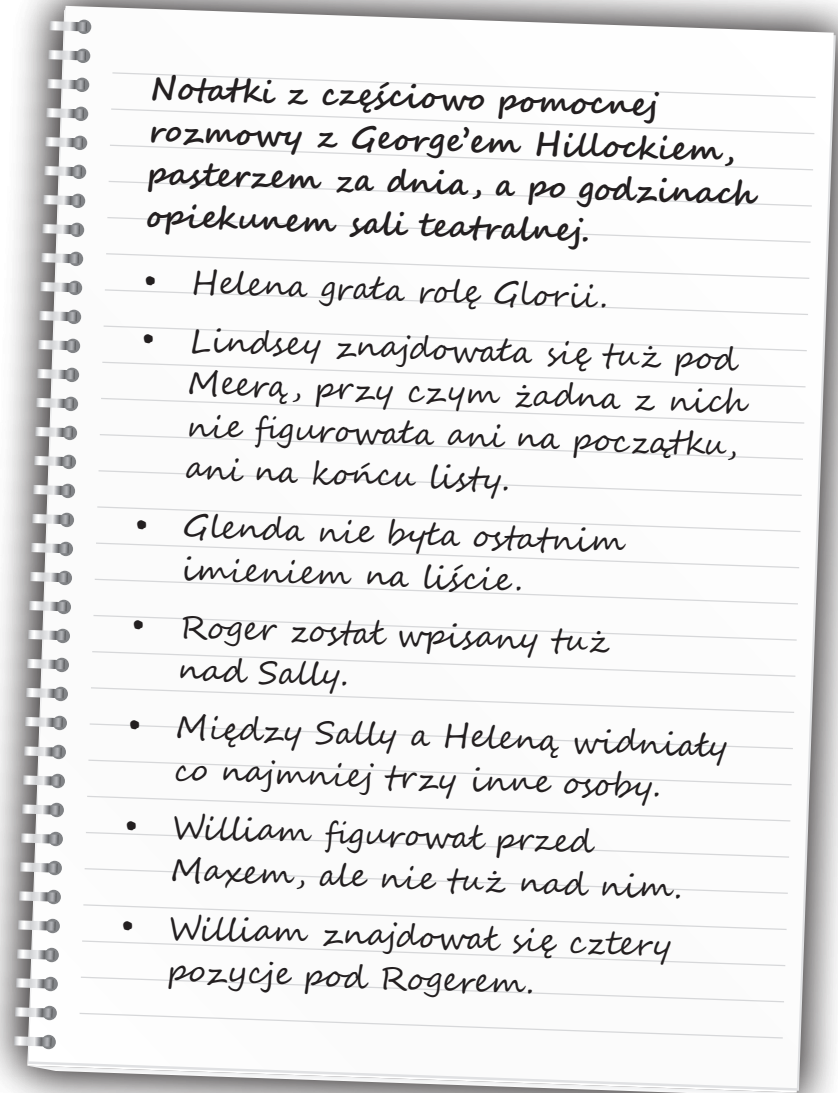 Notatki z częściowo pomocnej
rozmowy z George'em Hillockiem,
pasterzem za dnia, a po godzinach
opiekunem sali teatralnej.
• Helena grała rolę Glorii.
• Lindsey znajdowała się tuż pod
Meerą, przy czym żadna z nich
nie figurowała ani na początku,
ani na końcu listy.
• Glenda nie była ostatnim
imieniem na liście.
• Roger został wpisany tuż
nad Sally.
• Między Sally a Heleną widniały
co najmniej trzy inne osoby.
• William figurował przed
Maxem, ale nie tuż nad nim.
• William znajdował się cztery
pozycje pod Rogerem.